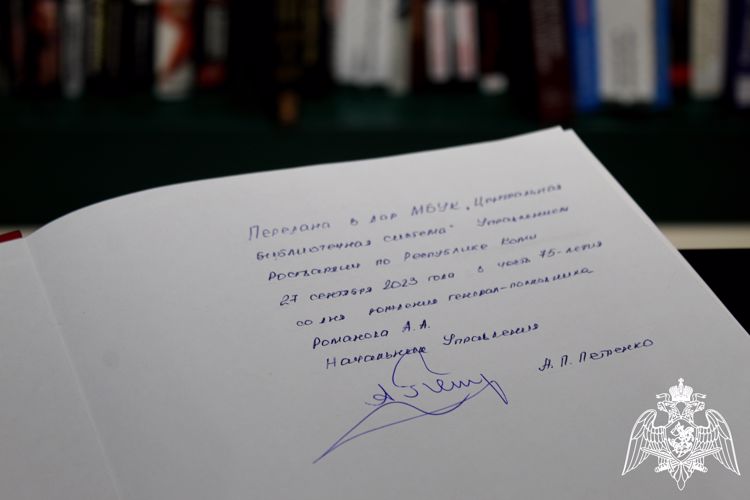 Передана в дар МБУК „Центральная
библиотечная система" Управлением
Росгвардии по Республике Коми
27 сентября 2023 года в честь 75-летия
со дня рождения генерал-полковника
Романова А.А.
Начальник Управления
А.П. Петренко